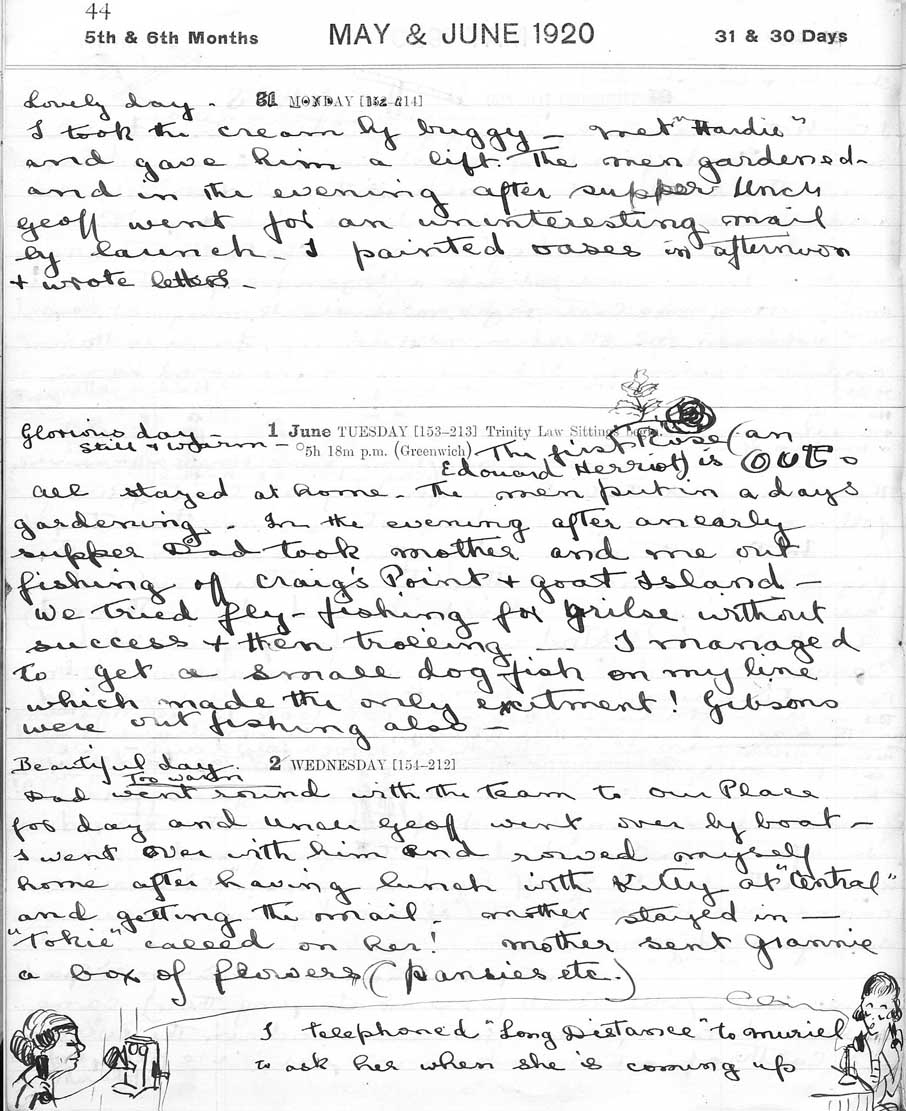 44
5th & 6th Months MAY & JUNE 1920 31 & 30 Days
Lovely day. 31 MONDAY [152-214]
I took the cream by buggy — met "Hardie"
and gave him a lift. The men gardened-
and in the evening after supper Uncle
Geoff went for an uninteresting mail
by launch. I painted vases in afternoon
+ wrote letters -
Glorious day - 1 June TUESDAY [153-213] Trinity Law Sittings begin.
still + warm - 5h 18m p.m. (Greenwich) The first Rose (an
Edouard Herriot) is OUT.
all stayed at home. The men put in a days
gardening. In the evening after an early
supper Dad took mother and me out
fishing of Craig's Point + goat Island -
we tried fly-fishing for grilse without
success + then trolling. - I managed
to get a small dog fish on my line
which made the only excitment! Gibsons
were out fishing also -
Beautiful day. 2 WEDNESDAY [154-212]
Too warm
Dad went round with the team to our Place
for day and Uncle Geoff went over by boat -
I went over with him and rowed myself
home after having lunch with Kitty at "Central"
and getting the mail. mother stayed in —
"Tokie" called on her! mother sent Grannie
a box of flowers (pansies etc.)
I telephoned "Long Distance" to Muriel
to ask her when she is coming up